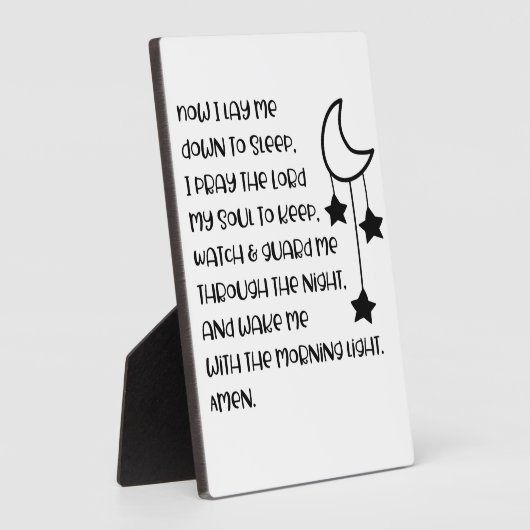 NOW I LAY ME
DOWN TO SLEEP,
I PRAY THE LORD
MY SOUL TO KEEP,
WATCH & GUARD ME
THROUGH THE NIGHT,
AND WAKE ME
WITH THE MORNING LIGHT.
AMEN.